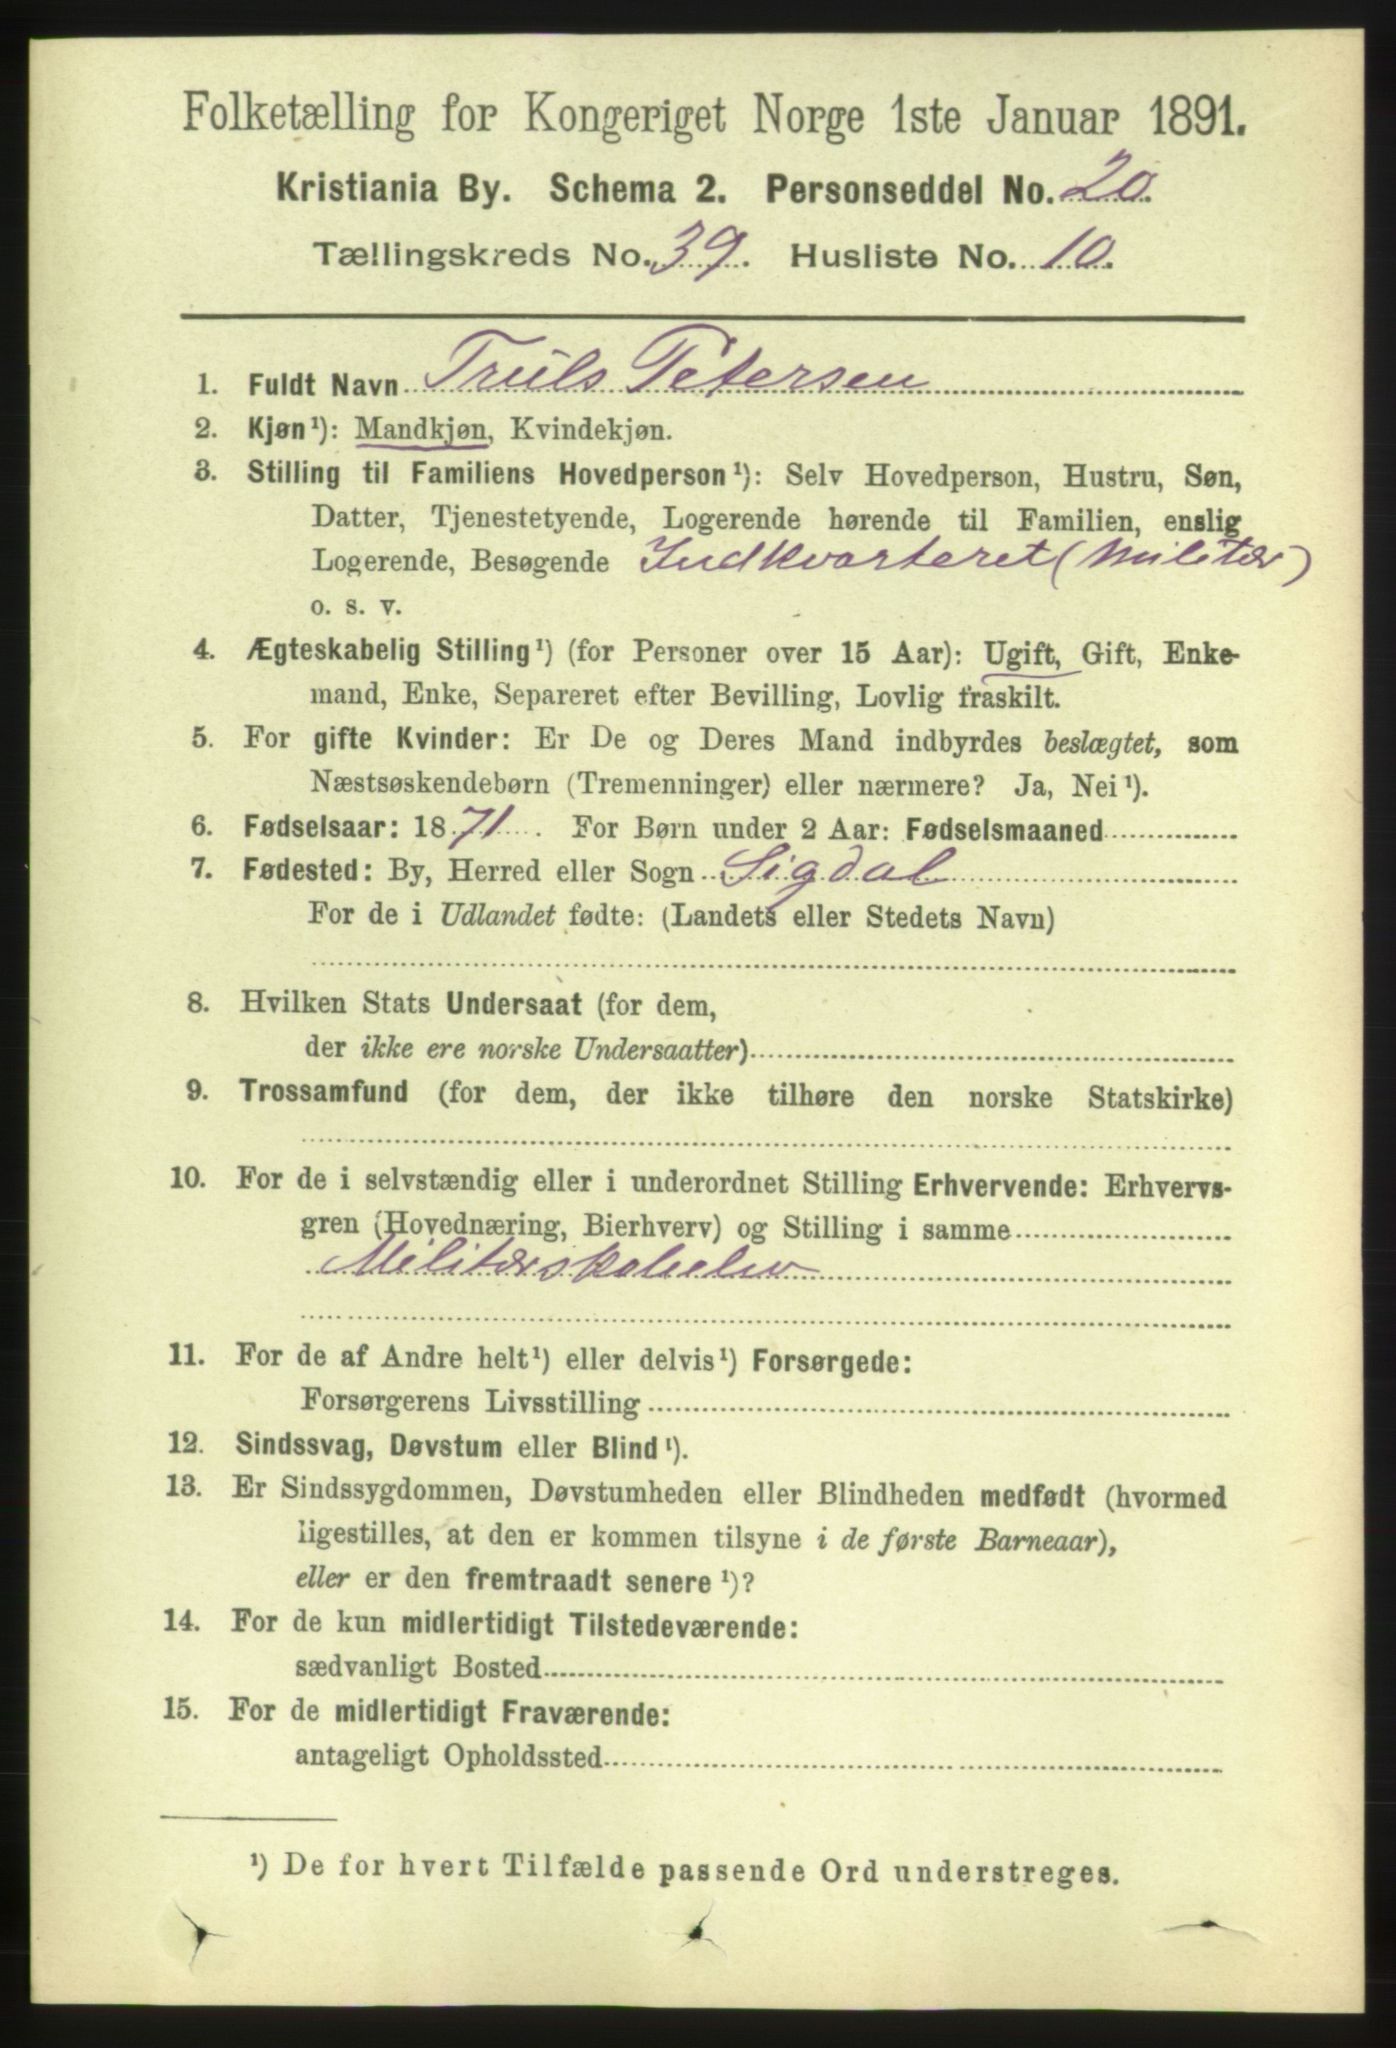 Folketælling for Kongeriget Norge 1ste Januar 1891.
Kristiania By. Schema 2. Personseddel No. 20.
Tællingskreds No. 39. Husliste No. 10.
1. Fuldt Navn Truls Petersen
2. Kjøn¹): Mandkjøn, Kvindekjøn.
3. Stilling til Familiens Hovedperson¹): Selv Hovedperson, Hustru, Søn,
Datter, Tjenestetyende, Logerende hørende til Familien, enslig
Logerende, Besøgende Indkvarteret (Militær)
o. s. v.
4. Ægteskabelig Stilling¹) (for Personer over 15 Aar): Ugift, Gift, Enke-
mand, Enke, Separeret efter Bevilling, Lovlig fraskilt.
5. For gifte Kvinder: Er De og Deres Mand indbyrdes beslægtet, som
Næstsøskendebørn (Tremenninger) eller nærmere? Ja, Nei¹).
6. Fødselsaar: 1871. For Børn under 2 Aar: Fødselsmaaned
7. Fødested: By, Herred eller Sogn Sigdal
For de i Udlandet fødte: (Landets eller Stedets Navn)
8. Hvilken Stats Undersaat (for dem,
der ikke ere norske Undersaatter)
9. Trossamfund (for dem, der ikke tilhøre den norske Statskirke)
10. For de i selvstændig eller i underordnet Stilling Erhvervende: Erhvervs-
gren (Hovednæring, Bierhverv) og Stilling i samme
Militærskoleelev
11. For de af Andre helt¹) eller delvis¹) Forsørgede:
Forsørgerens Livsstilling
12. Sindssvag, Døvstum eller Blind¹).
13. Er Sindssygdommen, Døvstumheden eller Blindheden medfødt (hvormed
ligestilles, at den er kommen tilsyne i de første Barneaar),
eller er den fremtraadt senere¹)?
14. For de kun midlertidigt Tilstedeværende:
sædvanligt Bosted
15. For de midlertidigt Fraværende:
antageligt Opholdssted
¹) De for hvert Tilfælde passende Ord understreges.